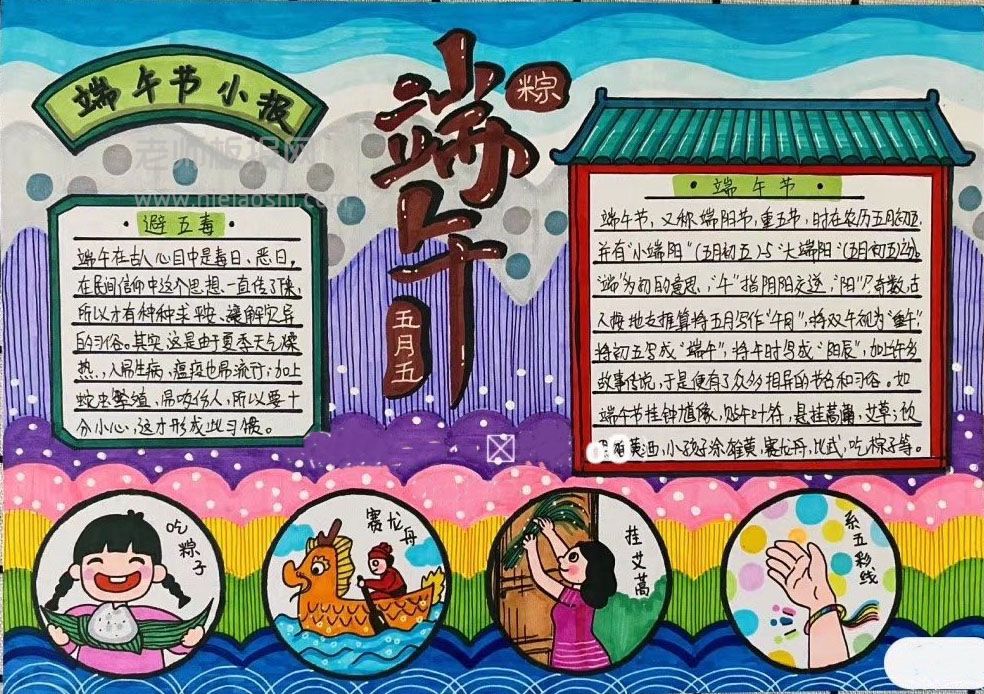 端午节小报
端午
粽
五月五
老师板报网
避五毒
端午在古人心目中是毒日、恶日,
在民间信仰中这个思想一直传了下来,
所以才有种种求平安、禳解灾异
的习俗。其实这是由于夏季天气燥
热,人易生病,瘟疫也易流行;加上
蛇虫繁殖,易咬伤人,所以要十
分小心,这才形成此习俗。
端午节
端午节,又称端阳节,重五节,时在农历五月初五,
并有“小端阳”(五月初五)与“大端阳”(五月初五)之分。
“端”为初的意思,“午”指阴阳交逆,“阳”只奇数,古
人按地支推算将五月写作“午月”,将双午视为“重午”
将初五写成“端午”,将午时写成“阳辰”,加上许多
故事传说,于是便有了众多相异的节名和习俗。如
端午节挂钟馗像,贴午叶符,悬挂菖蒲,艾草;饮
黄酒,小孩子涂雄黄,赛龙舟,比武,吃粽子等。
吃粽子
赛龙舟
挂艾蒿
系五彩线